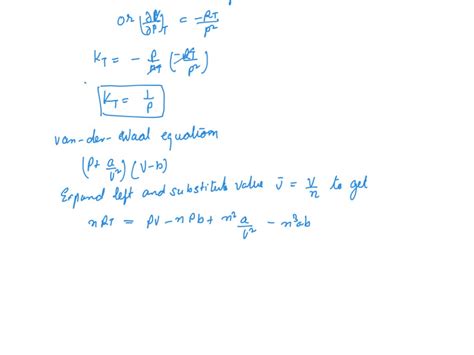 or (∂V̄/∂P)_T = -RT/P²
K_T = - P/RT (-RT/P²)
K_T = 1/P
van-der-Waal equation
(P+ a/V̄²) (V̄-b)
Expand left and substitute value V̄ = V/n to get
nRT = PV - nPb + n² a/V - n³ab